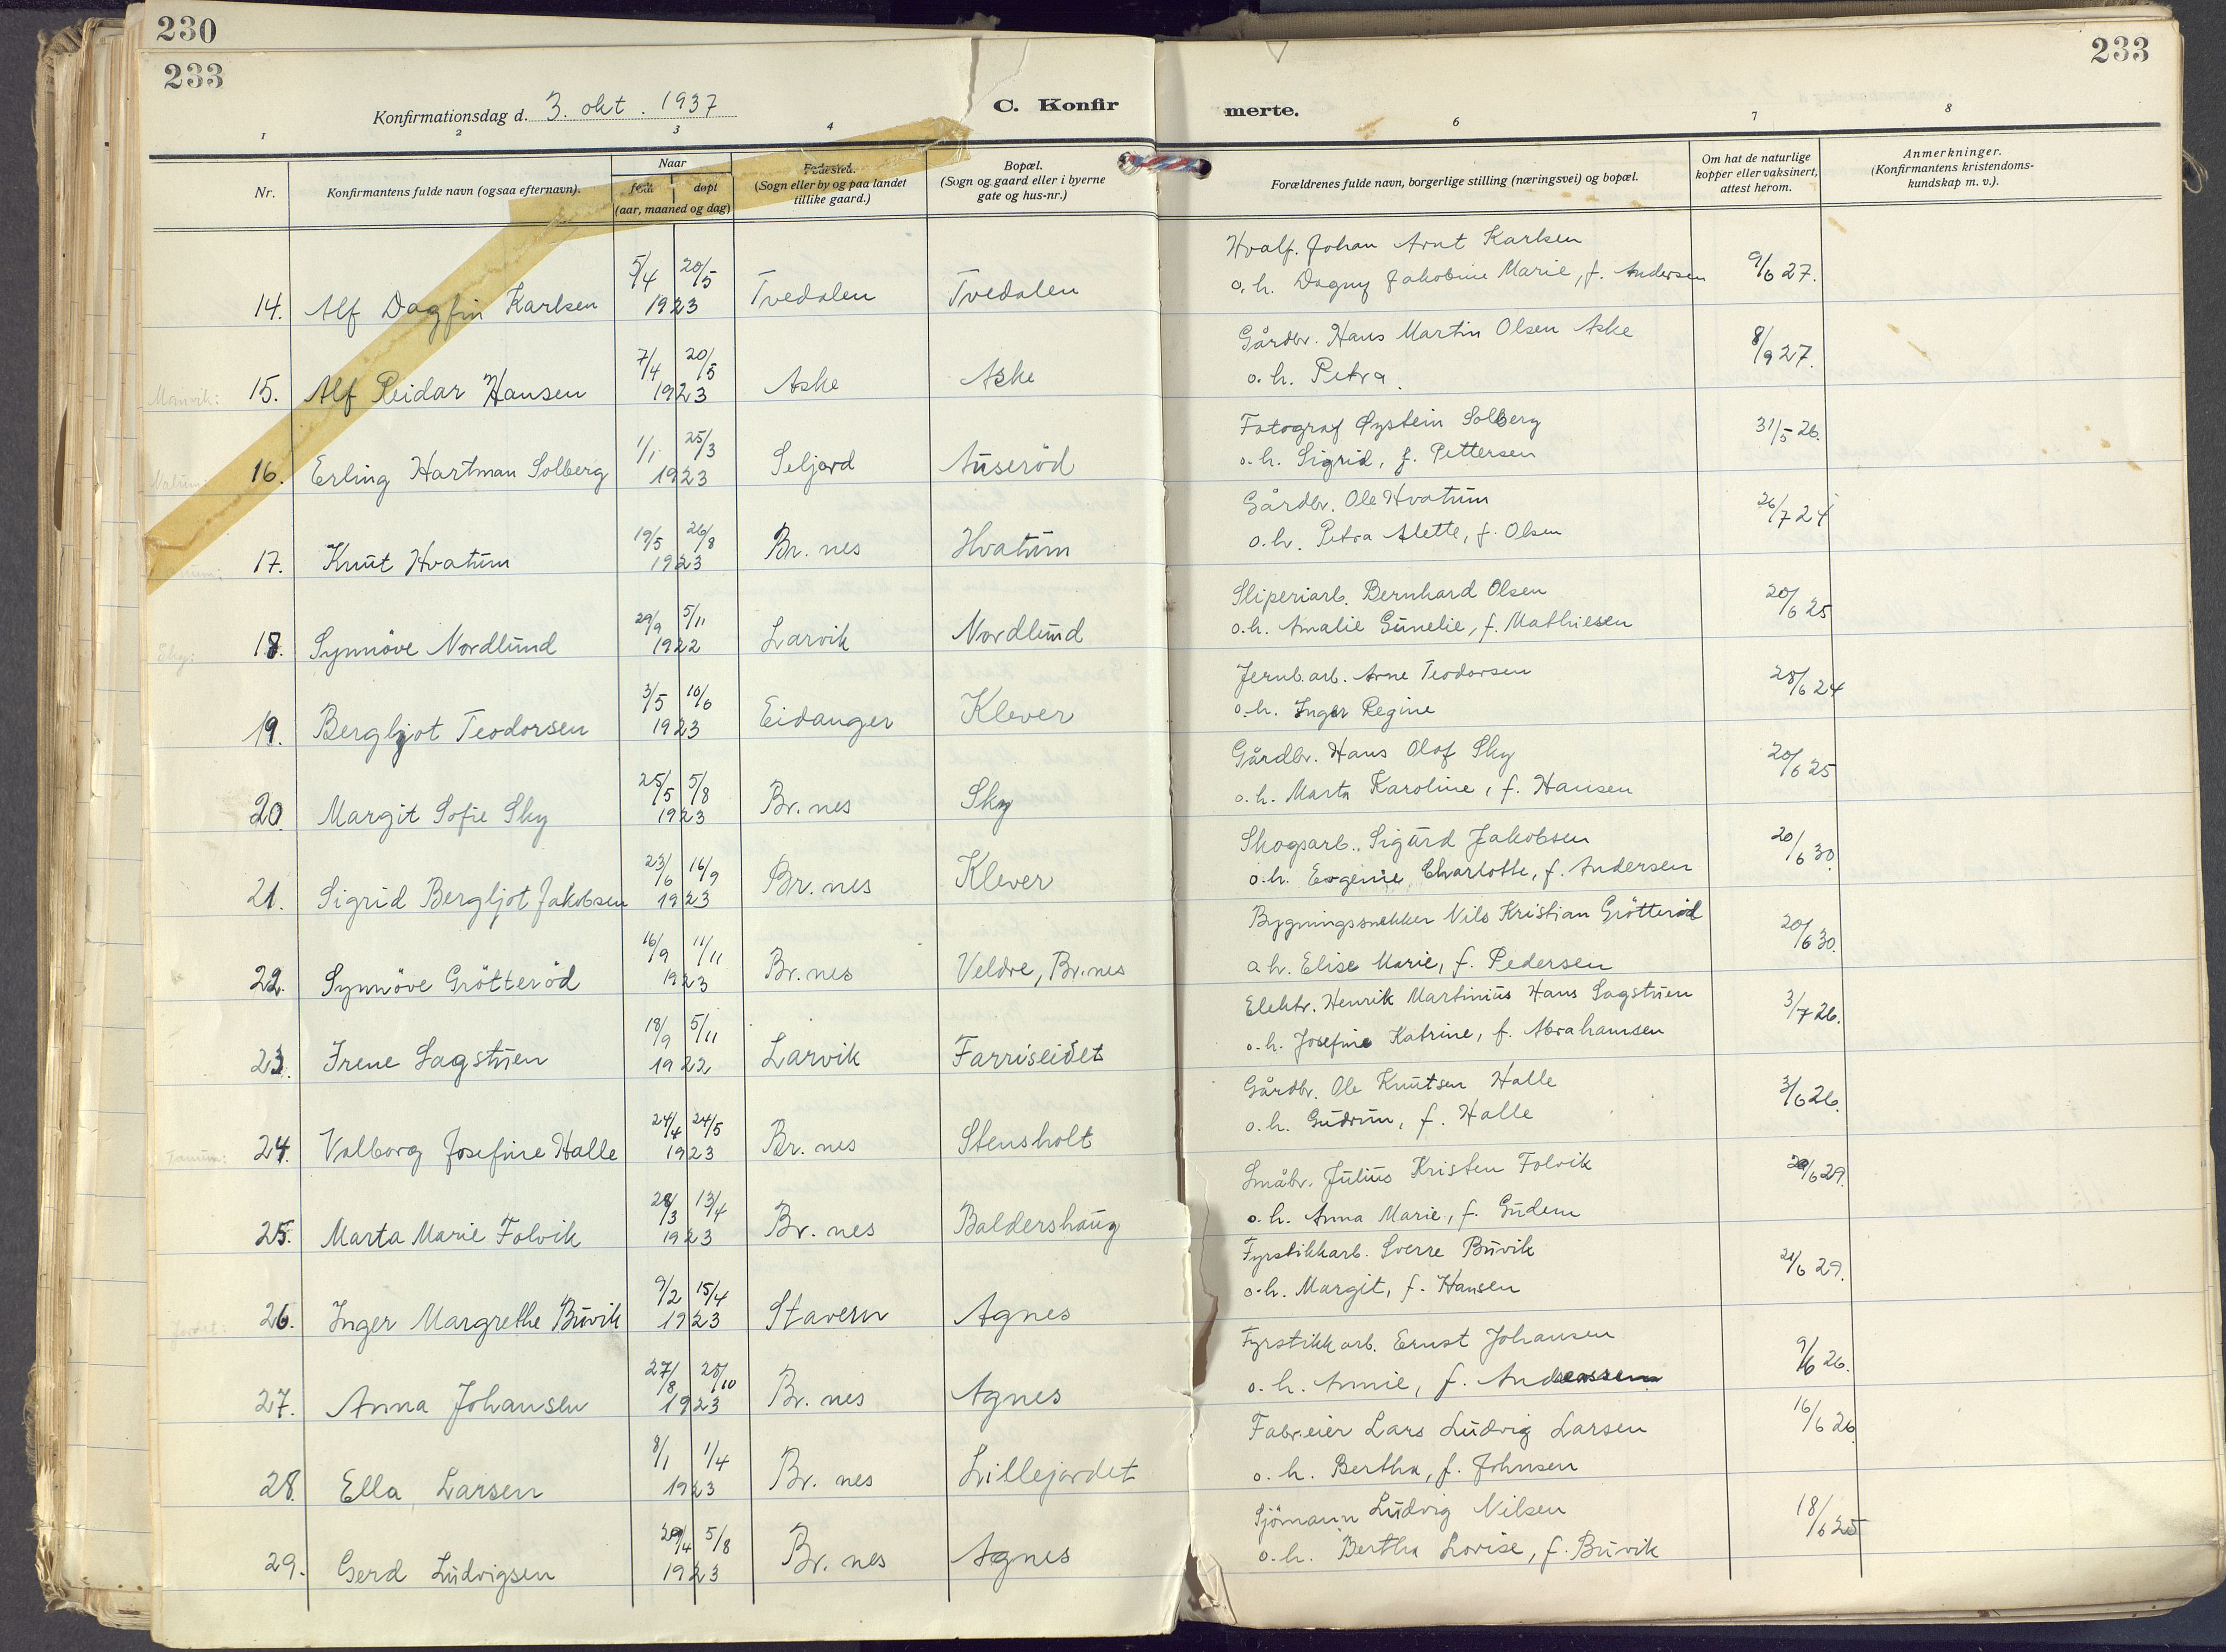 230
233
233
Konfirmationsdag d. 3. okt. 1937
C. Konfirmerte.
1 2 3 4 6 7 8
Nr.
Konfirmantens fulde navn (ogsaa efternavn).
Naar
født døpt
(aar, maaned og dag)
Fødested.
(Sogn eller by og paa landet
tillike gaard.)
Bopæl.
(Sogn og gaard eller i byerne
gate og hus-nr.)
Forældrenes fulde navn, borgerlige stilling (næringsvei) og bopæl.
Om hat de naturlige
kopper eller vaksinert,
attest herom.
Anmerkninger.
(Konfirmantens kristendoms-
kundskap m. v.).
Hvalf. Johan Arnt Karlsen
5/4 20/5 o. h. Dagny Jakobine Marie, f. Andersen 9/6 27.
14. Alf Dagfin Karlsen 1923 Tvedalen Tvedalen
Gårdbr. Hans Martin Olsen Aske
7/4 20/5 o. h. Petra. 8/9 27.
15. Alf Reidar Hansen 1923 Aske Aske
Fotograf Øystein Solberg
1/1 25/3 o. h. Sigrid, f. Pettersen 31/5 26.
16. Erling Hartman Solberg 1923 Seljord Auserød
Gårdbr. Ole Hvatum
19/5 26/8 o. h. Petra Alette, f. Olsen 26/7 24
17. Knut Hvatum 1923 Br. nes Hvatum
Sliperiarb. Bernhard Olsen
29/9 5/11 o. h. Amalie Gunelie, f. Mathiesen 20/6 25
18. Synnöve Nordlund 1922 Larvik Nordlund
Jernb. arb. Arne Teodorsen
3/5 10/6 o. h. Inger Regine 28/6 24
19. Bergljot Teodorsen 1923 Eidanger Klever
Gårdbr. Hans Olof Sky
25/5 5/8 o. h. Marta Karoline, f. Hansen 20/6 25
20. Margit Sofie Sky 1923 Br. nes Sky
Skogsarb. Sigurd Jakobsen
23/6 16/9 o. h. Eugenie Charlotte, f. Andersen 20/6 30.
21. Sigrid Bergljot Jakobsen 1923 Br. nes Klever
Bygningssnekker Nils Kristian Grötteröd
16/9 11/11 o. h. Elise Marie, f. Pedersen 20/6 30.
22. Synnöve Grötteröd 1923 Br. nes Veldre, Br. nes
Elektr. Henrik Martinius Hans Sagstuen
18/9 5/11 o. h. Josefine Katrine, f. Abrahamsen 3/7 26.
23. Irene Sagstuen 1922 Larvik Farriseidet
Gårdbr. Ole Knutsen Halle
24/4 24/5 o. h. Gudrun, f. Halle 3/6 26.
Tanum: 24. Valborg Josefine Halle 1923 Br. nes Stensholt
Småbr. Julius Kristen Folvik
28/3 13/4 o. h. Anna Marie, f. Gudem 20/6 29.
25. Marta Marie Folvik 1923 Br. nes Baldershaug
Fyrstikkarb. Sverre Buvik
9/2 15/4 o. h. Margit, f. Hansen 21/6 29.
26. Inger Margrethe Buvik 1923 Stavern Agnes
Fyrstikkarb. Ernst Johansen
27/8 28/10 o. h. Annie, f. Andreassen 9/6 26.
27. Anna Johansen 1923 Br. nes Agnes
Fabr.eier Lars Ludvig Larsen
8/1 1/4 o. h. Bertha, f. Johnsen 16/6 26.
28. Ella Larsen 1923 Br. nes Lillejordet
Sjömann Ludvig Nilsen
29/4 5/8 o. h. Bertha Lovise, f. Buvik 18/6 25
29. Gerd Ludvigsen 1923 Br. nes Agnes